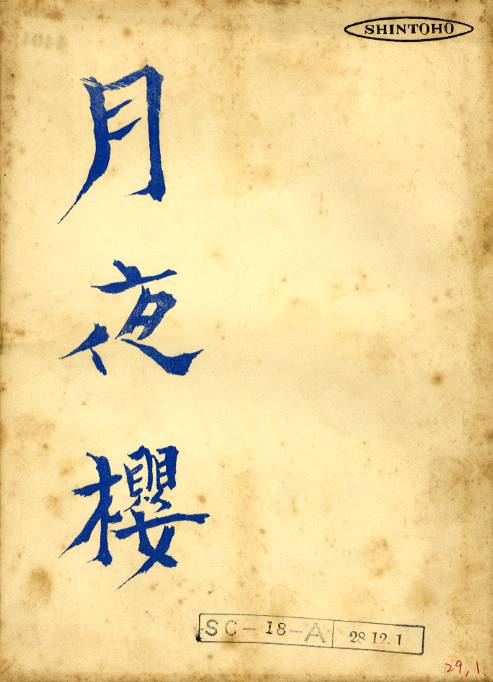 SHINTOHO
月夜櫻
SC-18-A 28.12.1
29,1